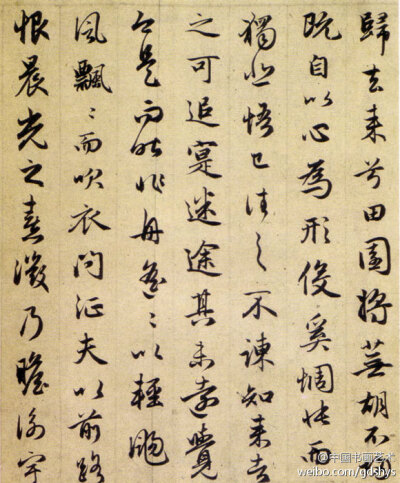 歸去来兮田園将蕪胡不
既自以心為形役奚惆悵而
獨悲悟已往之不諫知来者
之可追寔迷途其未遠覺
今是而昨非舟遙〻以輕颺
風飄〻而吹衣問征夫以前路
恨晨光之熹微乃瞻衡宇
@中国书画艺术
weibo.com/gdshys